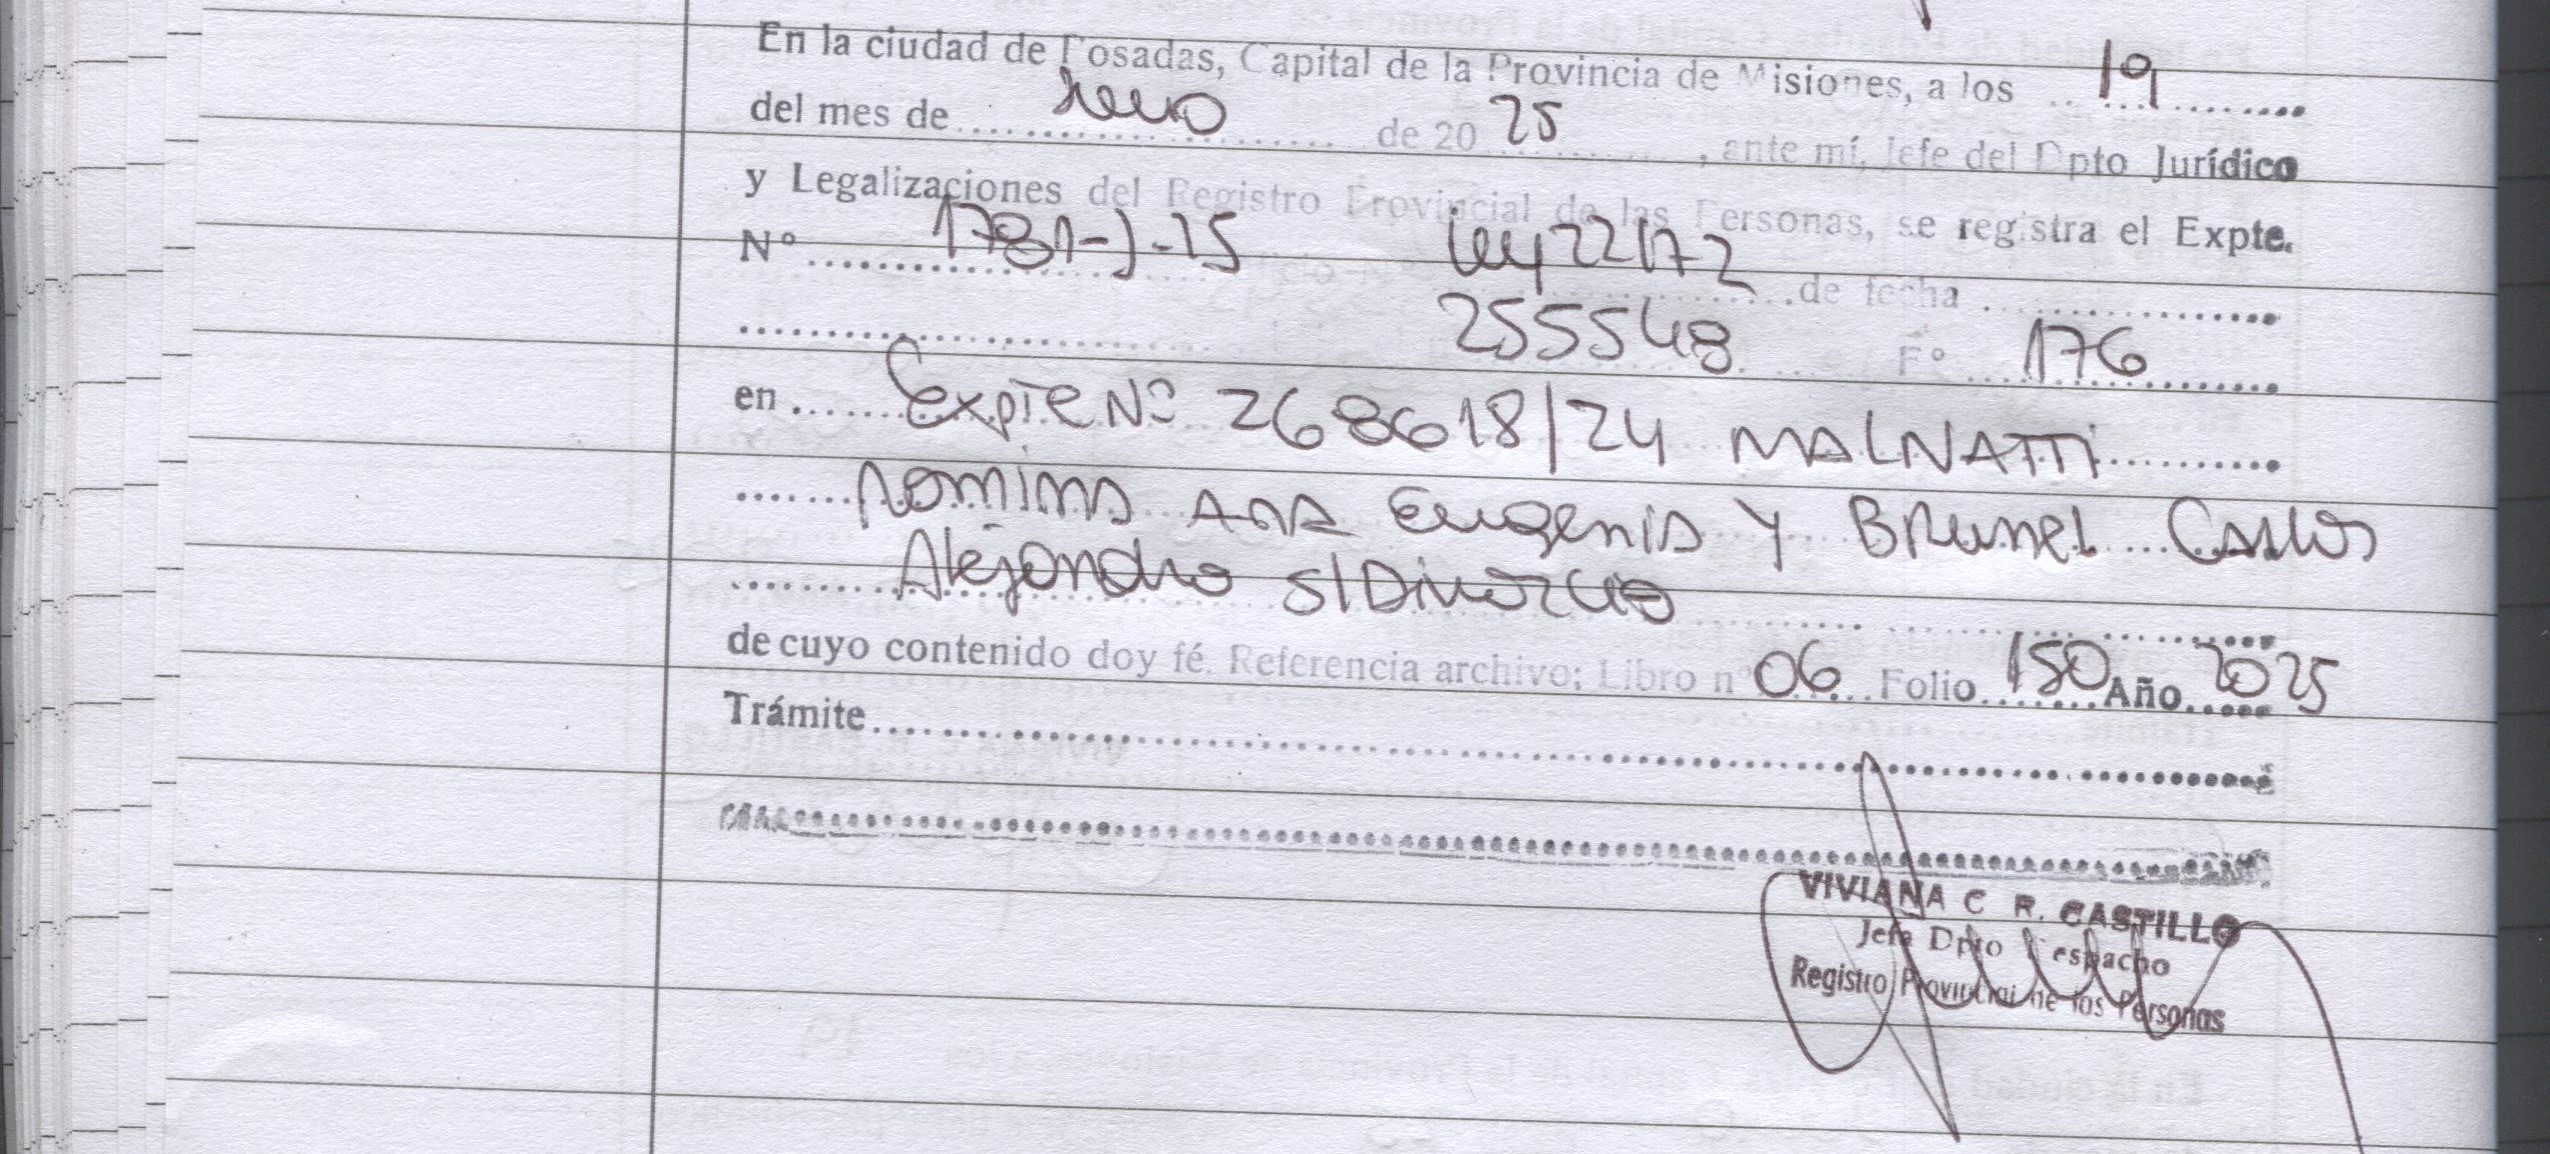 En la ciudad de Posadas, Capital de la Provincia de Misiones, a los 19
del mes de de 20 25, ante mí, Jefe del Dpto Jurídico
y Legalizaciones del Registro Provincial de las Personas, se registra el Expte.
Nº 1781-J-25 Ley 22172 de fecha
255548 Fº 176
en Expte Nº 268618/24 MALNATTi
Romina Ana Eugenia Y Brunel Carlos
Alejandro S/Divorcio
de cuyo contenido doy fé. Referencia archivo; Libro nº 06 Folio 150 Año 2025
Trámite
VIVIANA C R. CASTILLO
Jefa Dpto Despacho
Registro Provincial de las Personas